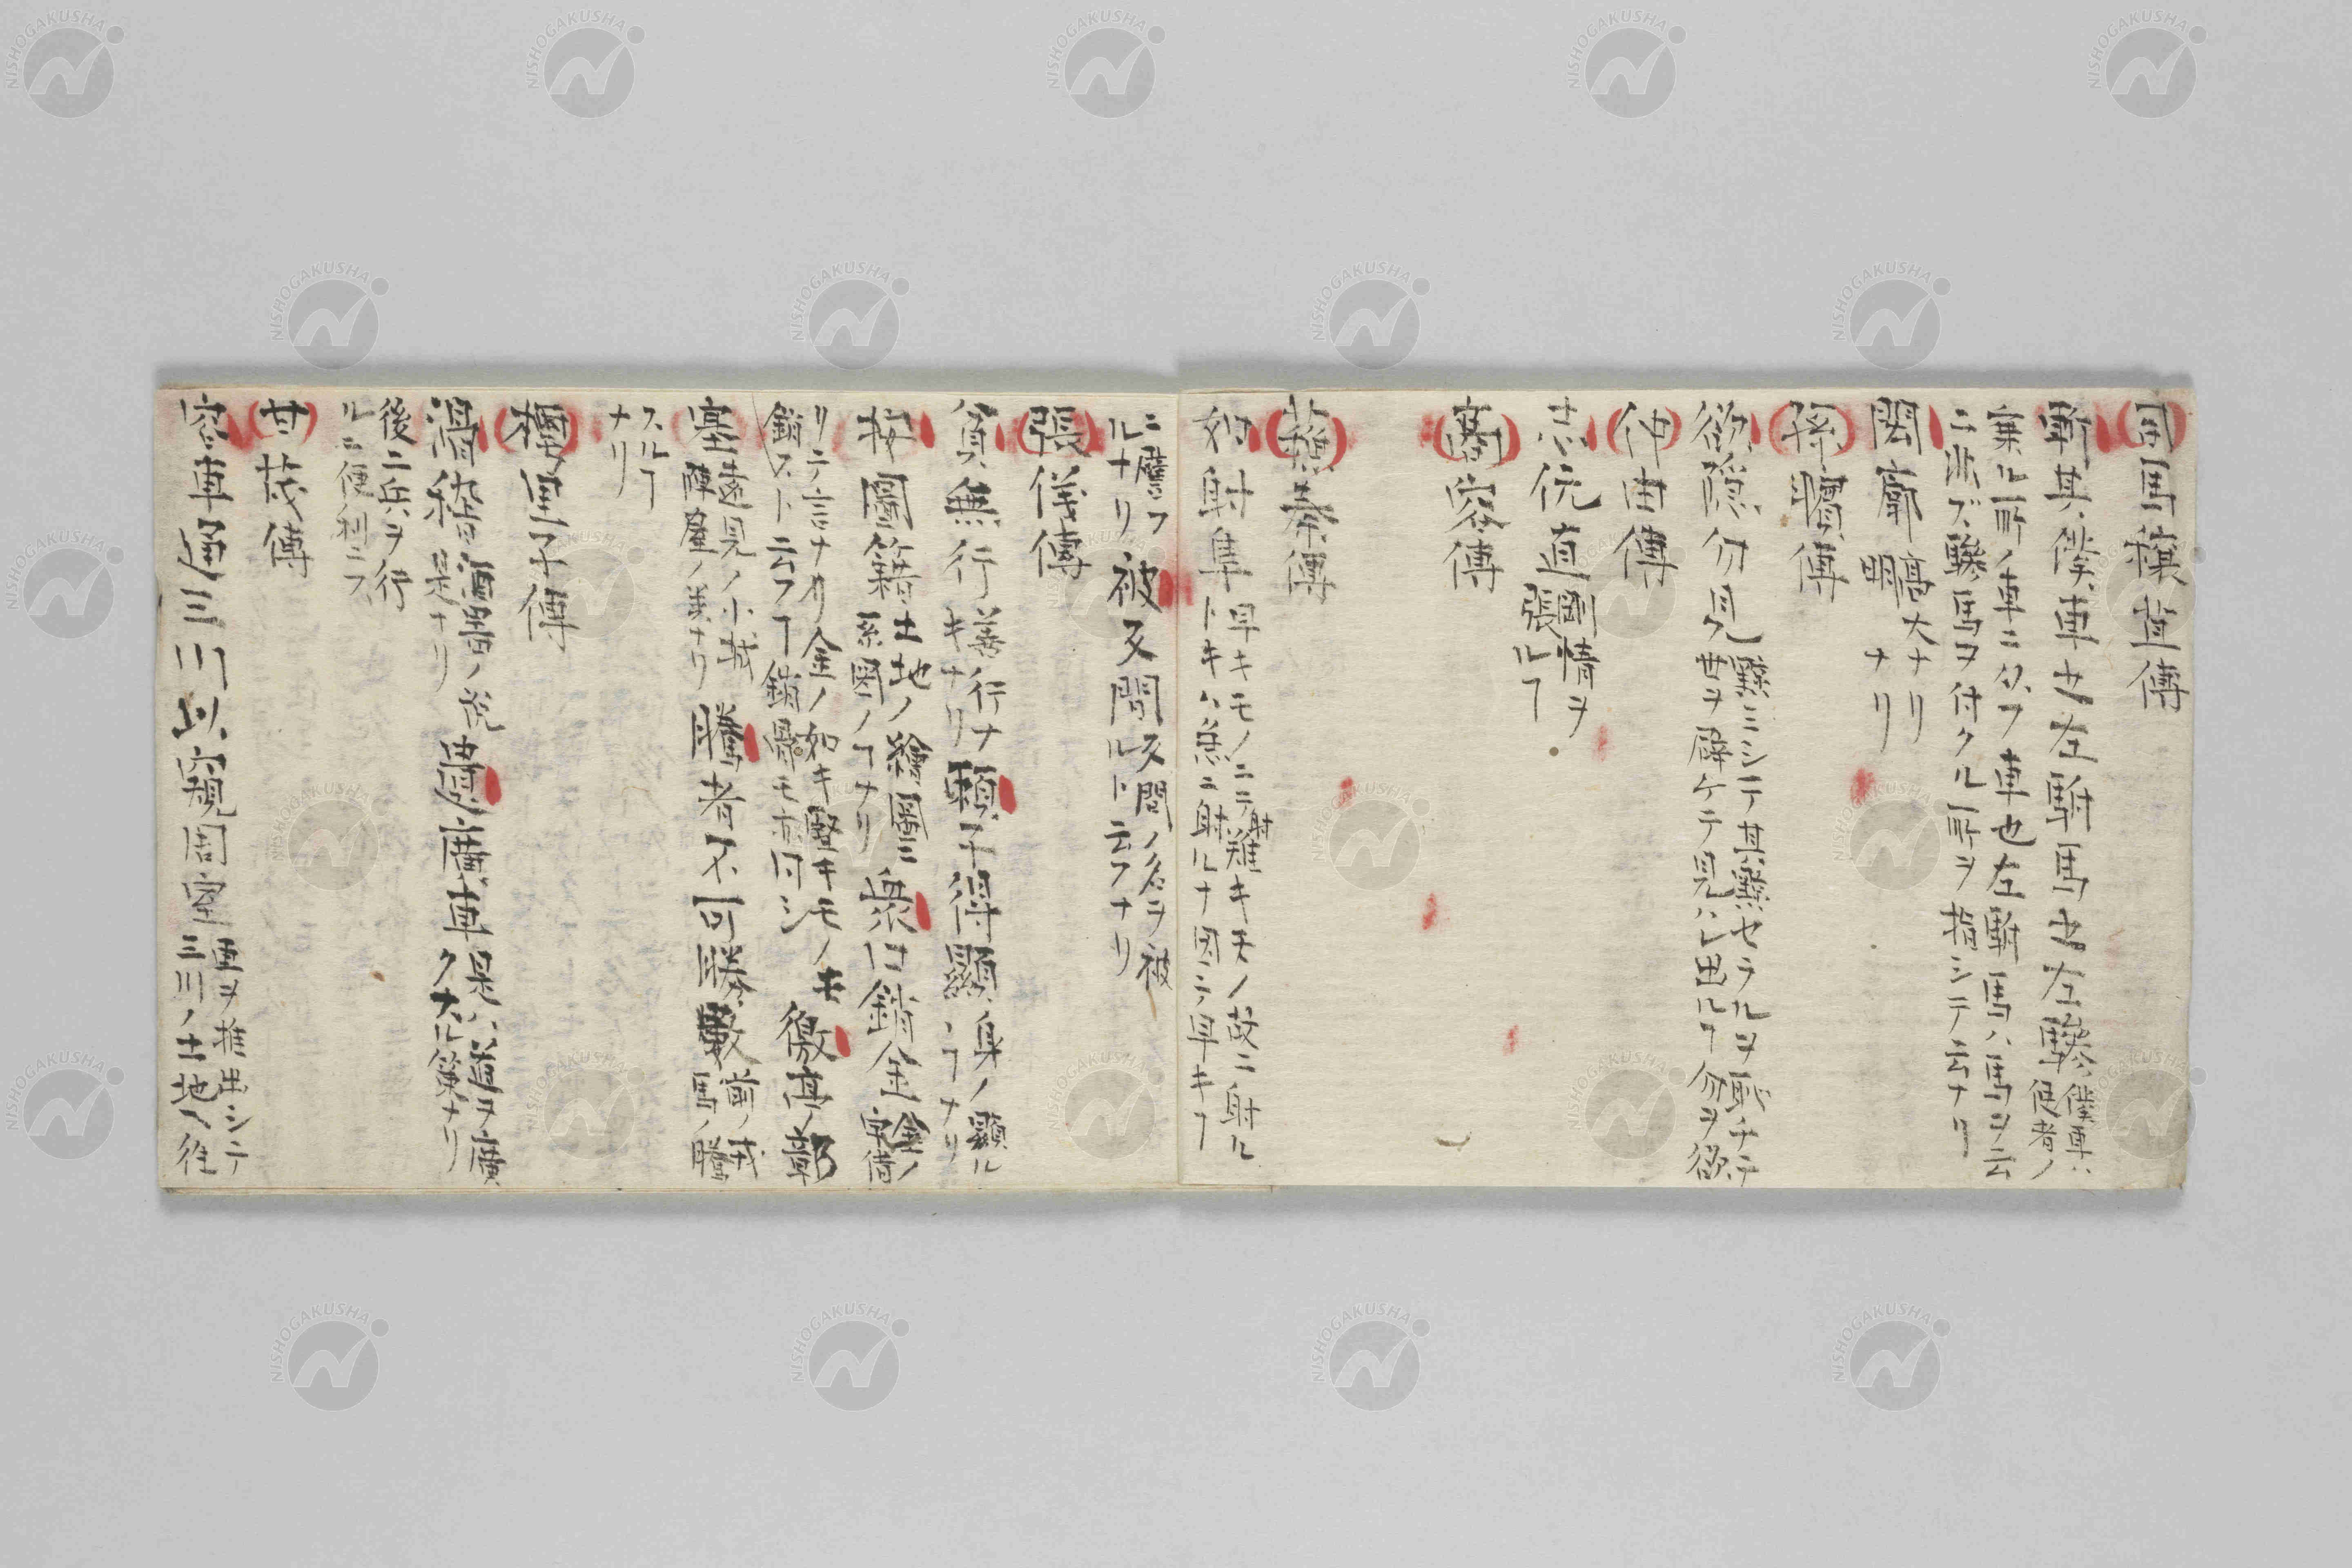 司馬穰苴傳
斬其僕車ノ左駙馬ノ左驂 僕車ハ使者ノ
乗ル所ノ車ニタフ車也左駙馬ハ馬ヲ云
ニ非ズ驂馬ヲ付クル所ヲ指シテ云ナリ
閎廓 高大ナリ 明ナリ
孫臏傳
欲隠勿見 黥ミシテ其黥セラルヲ恥チテ世ヲ辟ケテ見ハレ出ルヿ勿ヲ欲
仲由傳
志伉直 剛情ヲ張ルヿ
商容傳
蘇秦傳
如射隼 卑キモノニテ難キモノ故ニ射ル
トキハ急ニ射ルナ因ニテ卑キヿ
ニ譬フルナリ 被反間 反間ノ名ヲ被ルト云フナリ
張儀傳
貧無行 善行ナキナリ 頼子得顕 身ノ顕ルヽヿナリ
按圖籍 土地ノ繪圖ニ系圖ノヿナリ 衆口鑠金 金ノ
リニテ言ナリ金ノ如キ堅キモノモ
鎖ストニ云フヿ 徼亭ノ鄣
塞 遠見ノ小城陣屋ノ義ナリ 騰者不可勝數 前ノ
スルヿナリ
樗里子傳
滑稽 酒器ノ流是ナリ 遺之廣車 是ハ道ヲ廣ク大ル義ナリ
後ニ兵ヲ行ルニ便利ニス
甘茂傳
容車通三川以窺周室 車ヲ推出シテ三川ノ土地ノ往
NISHOGAKUSHA